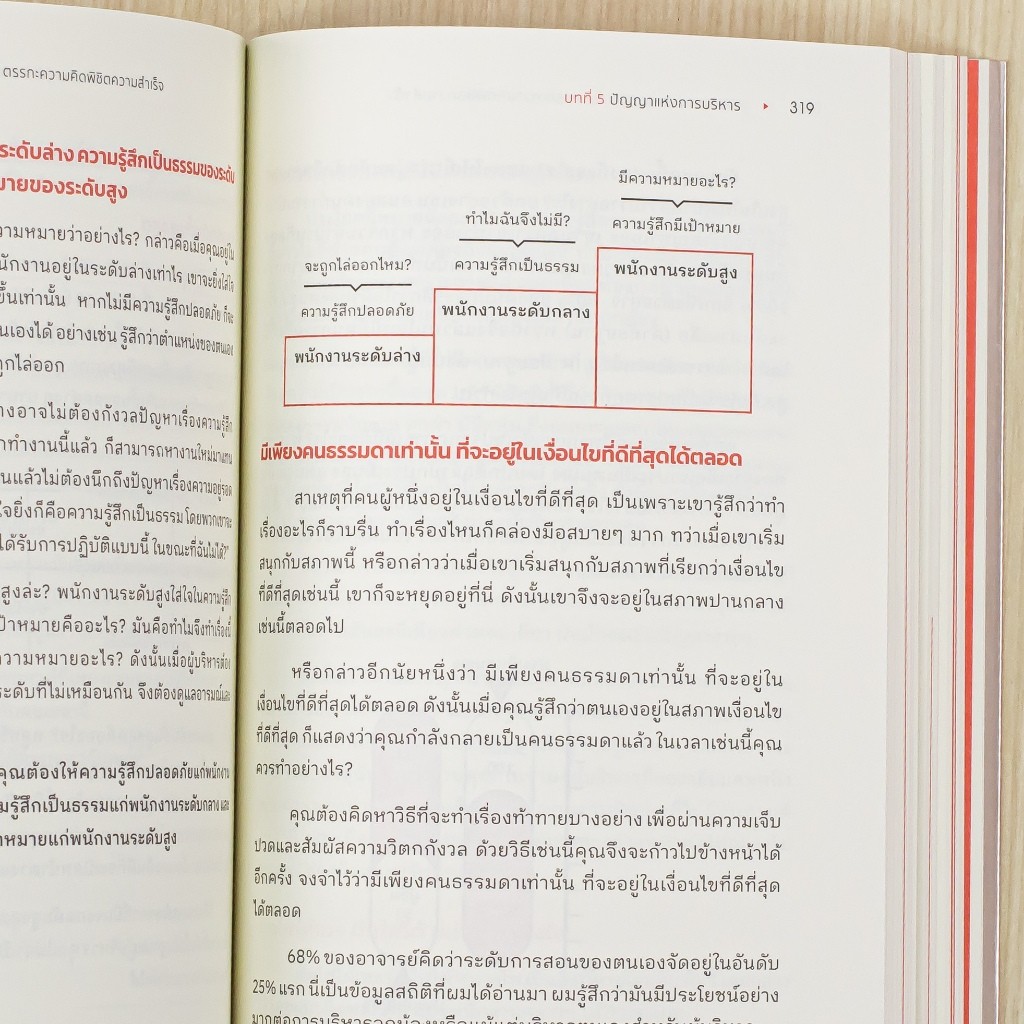 ตรรกะความคิดพิชิตความสำเร็จ
ระดับล่าง ความรู้สึกเป็นธรรมของระดับ
ของระดับสูง
ความหมายว่าอย่างไร? กล่าวคือเมื่อคุณอยู่ใน
อยู่ในระดับล่างเท่าไร เขาจะยิ่งใส่ใจ
ขึ้นเท่านั้น หากไม่มีความรู้สึกปลอดภัย ก็จะ
ได้ อย่างเช่น รู้สึกว่าตำแหน่งของตนเอง
ถูกไล่ออก
อาจไม่ต้องกังวลปัญหาเรื่องความรู้สึก
ทำงานนี้แล้ว ก็สามารถหางานใหม่มาแทน
แล้วไม่ต้องนึกถึงปัญหาเรื่องความอยู่รอด
ยิ่งก็คือความรู้สึกเป็นธรรม โดยพวกเขาจะ
ได้รับการปฏิบัติแบบนี้ ในขณะที่ฉันไม่ได้?"
สูงล่ะ? พนักงานระดับสูงใส่ใจในความรู้สึก
เป้าหมายคืออะไร? มันคือทำไมจึงทำเรื่องนี้
ความหมายอะไร? ดังนั้นเมื่อผู้บริหารต้อง
ระดับที่ไม่เหมือนกัน จึงต้องดูแลอารมณ์และ
คุณต้องให้ความรู้สึกปลอดภัยแก่พนักงาน
รู้สึกเป็นธรรมแก่พนักงานระดับกลาง และ
แก่พนักงานระดับสูง
บทที่ 5 ปัญญาแห่งการบริหาร ▸ 319
มีความหมายอะไร?
ความรู้สึกมีเป้าหมาย
พนักงานระดับสูง
ทำไมฉันจึงไม่มี?
ความรู้สึกเป็นธรรม
พนักงานระดับกลาง
จะถูกไล่ออกไหม?
ความรู้สึกปลอดภัย
พนักงานระดับล่าง
มีเพียงคนธรรมดาเท่านั้น ที่จะอยู่ในเงื่อนไขที่ดีที่สุดได้ตลอด
สาเหตุที่คนผู้หนึ่งอยู่ในเงื่อนไขที่ดีที่สุด เป็นเพราะเขารู้สึกว่าทำ
เรื่องอะไรก็ราบรื่น ทำเรื่องไหนก็คล่องมือสบายๆ มาก ทว่าเมื่อเขาเริ่ม
สนุกกับสภาพนี้ หรือกล่าวว่าเมื่อเขาเริ่มสนุกกับสภาพที่เรียกว่าเงื่อนไข
ที่ดีที่สุดเช่นนี้ เขาก็จะหยุดอยู่ที่นี่ ดังนั้นเขาจึงจะอยู่ในสภาพปานกลาง
เช่นนี้ตลอดไป
หรือกล่าวอีกนัยหนึ่งว่า มีเพียงคนธรรมดาเท่านั้น ที่จะอยู่ใน
เงื่อนไขที่ดีที่สุดได้ตลอด ดังนั้นเมื่อคุณรู้สึกว่าตนเองอยู่ในสภาพเงื่อนไข
ที่ดีที่สุด ก็แสดงว่าคุณกำลังกลายเป็นคนธรรมดาแล้ว ในเวลาเช่นนี้คุณ
ควรทำอย่างไร?
คุณต้องคิดหาวิธีที่จะทำเรื่องท้าทายบางอย่าง เพื่อผ่านความเจ็บ
ปวดและสัมผัสความวิตกกังวล ด้วยวิธีเช่นนี้คุณจึงจะก้าวไปข้างหน้าได้
อีกครั้ง จงจำไว้ว่ามีเพียงคนธรรมดาเท่านั้น ที่จะอยู่ในเงื่อนไขที่ดีที่สุด
ได้ตลอด
68% ของอาจารย์คิดว่าระดับการสอนของตนเองจัดอยู่ในอันดับ
25% แรก นี่เป็นข้อมูลสถิติที่ผมได้อ่านมา ผมรู้สึกว่ามันมีประโยชน์อย่าง